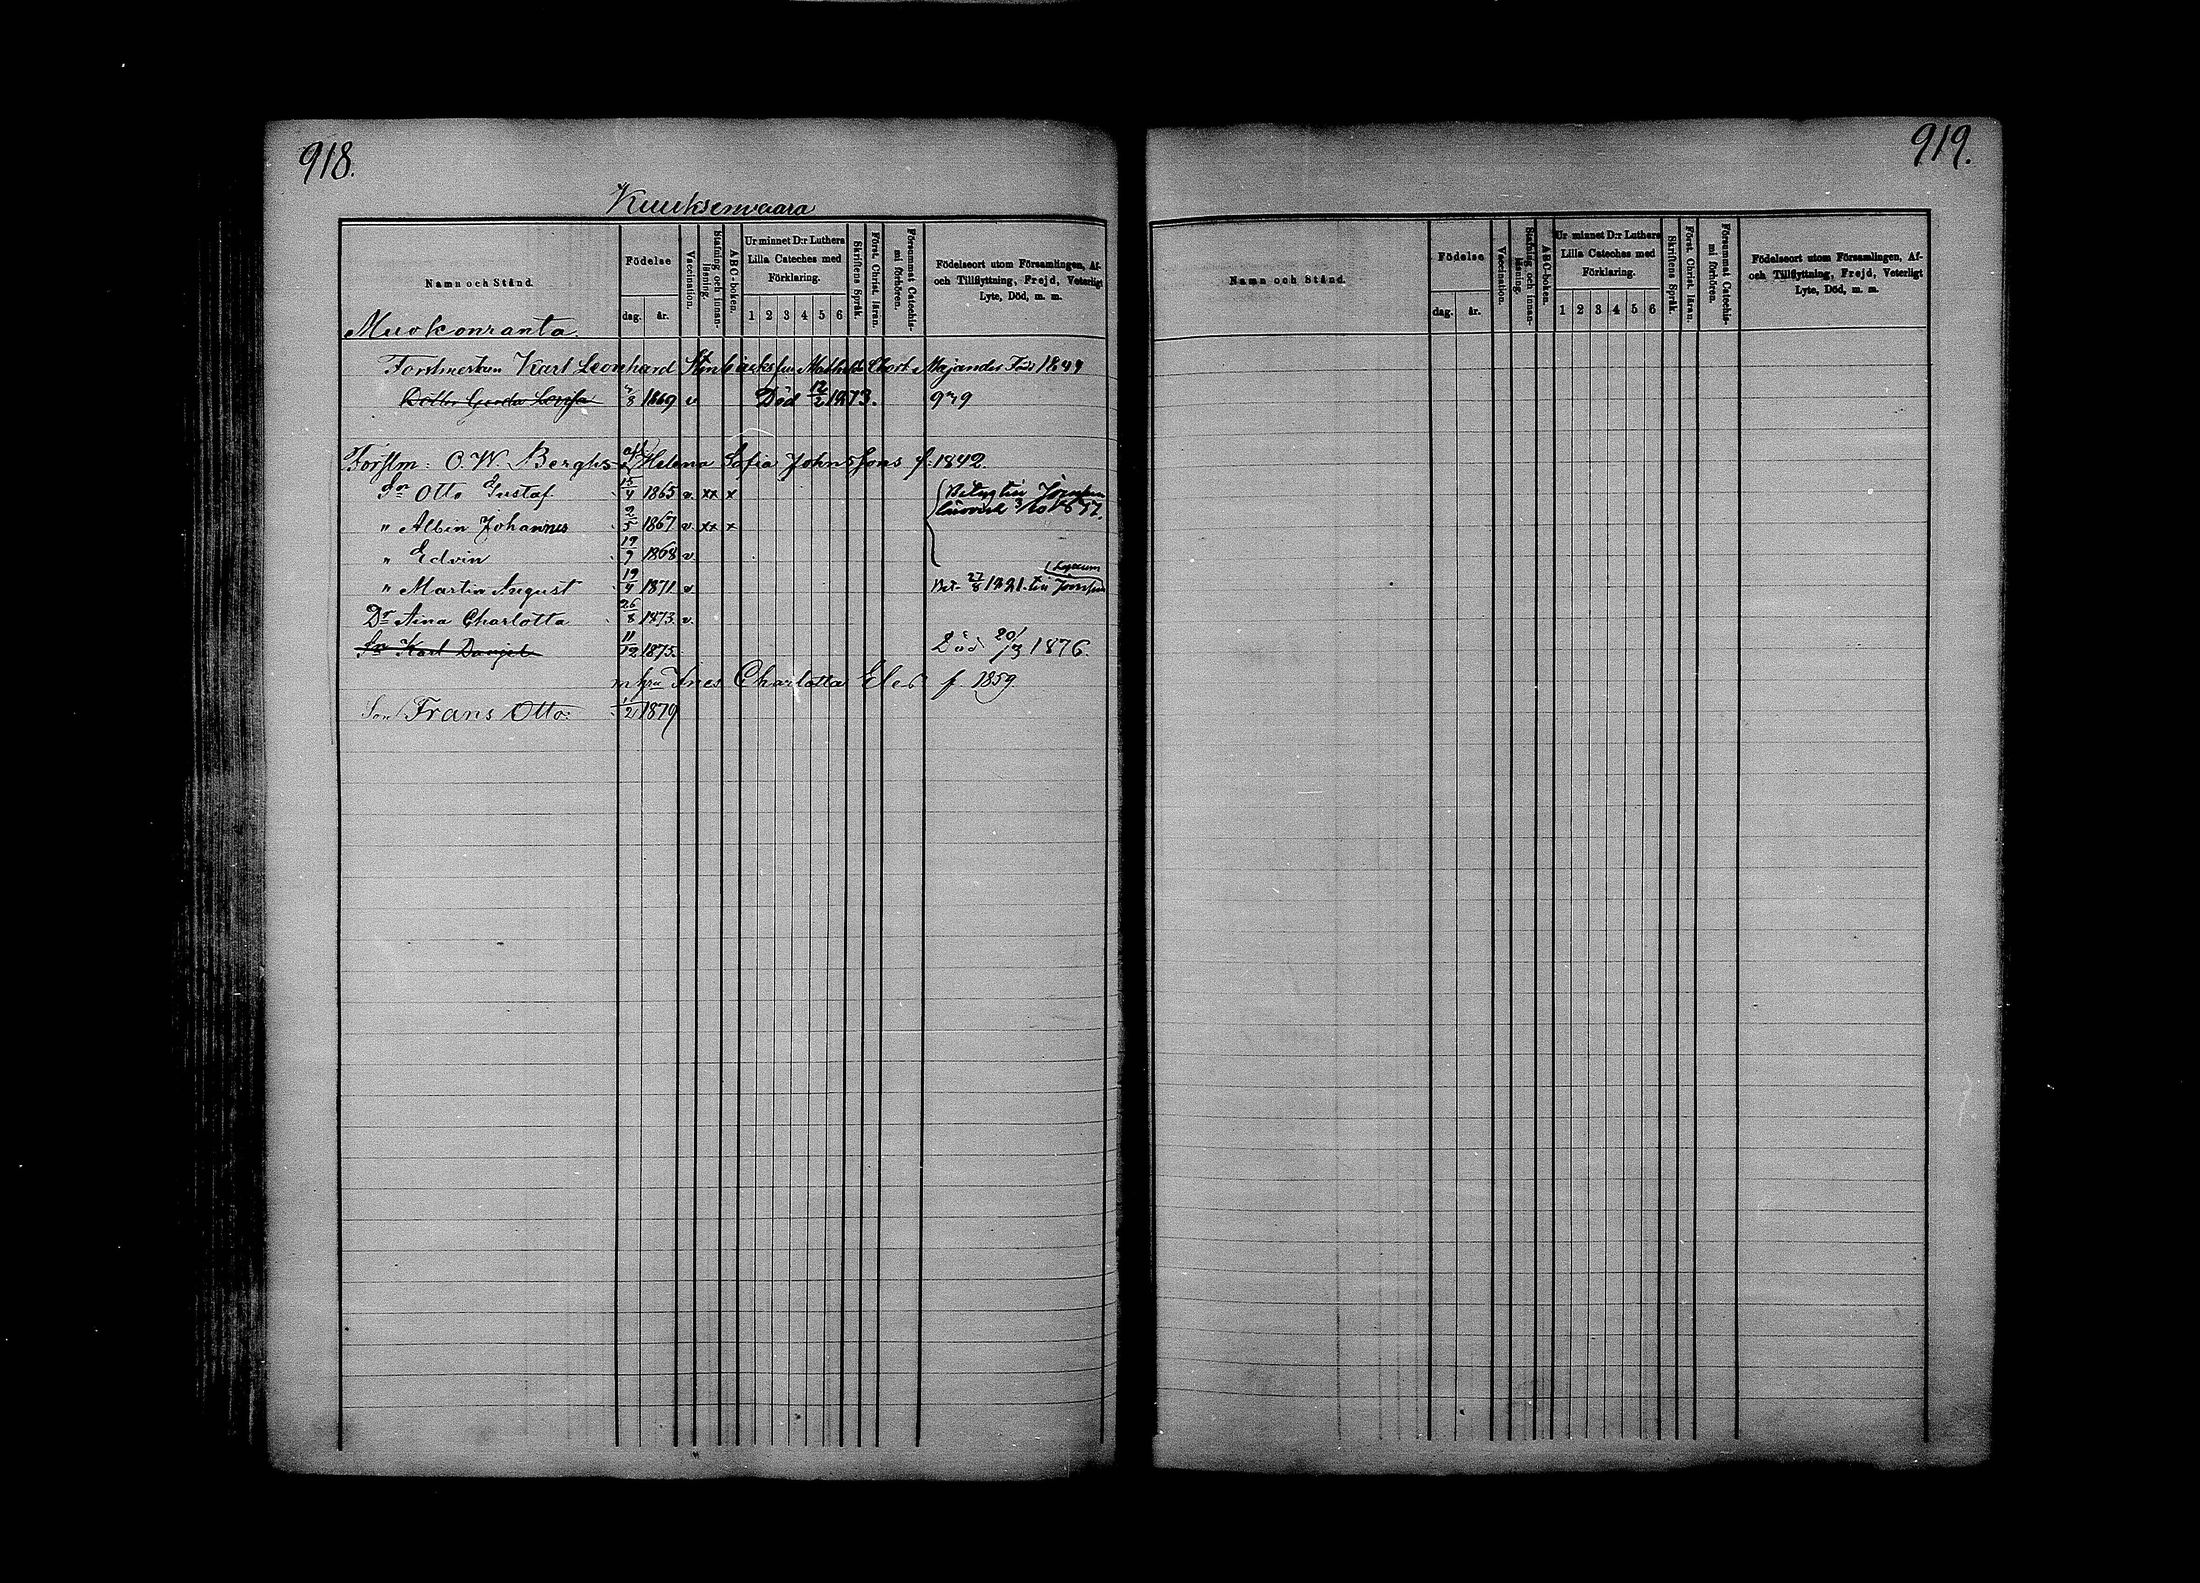 918.
Kuuksenvaara
Namn och Stånd.
Födelse
dag. år.
Vaccination.
Stafning och innanläsning.
ABC-boken.
Ur minnet D:r Luthers Lilla Cateches med Förklaring.
1 2 3 4 5 6
Skriftens Språk.
Först. Christ. läran.
Försummat Catechismi förhören.
Födelseort utom Församlingen, Af- och Tillflyttning, Frejd, Veterligt Lyte, Död, m. m.
Muokonranta.
Karl Leonhard Majander Född 1849
Gerda 1869 v Död 12/2 1873. 979
Forstm: O. W. Berghs Helena Sofia f. 1842.
Sn Otto Gustaf 15/4 1865 v. xx x
" Albin Johannes 2/5 1867 v. xx x
" Edvin 19/9 1868 v.
" Martin August 19/4 1871 v. Bet. 27/8 1881 till Lyceum
Dr Aina Charlotta 26/8 1873 v.
Sn Karl Daniel 11/12 1875. Död 20/3 1876.
Ines Charlotta f. 1859.
Son Frans Otto 1/2 1879
919.
Namn och Stånd.
Födelse
dag. år.
Vaccination.
Stafning och innanläsning.
ABC-boken.
Ur minnet D:r Luthers Lilla Cateches med Förklaring.
1 2 3 4 5 6
Skriftens Språk.
Först. Christ. läran.
Försummat Catechismi förhören.
Födelseort utom Församlingen, Af- och Tillflyttning, Frejd, Veterligt Lyte, Död, m. m.